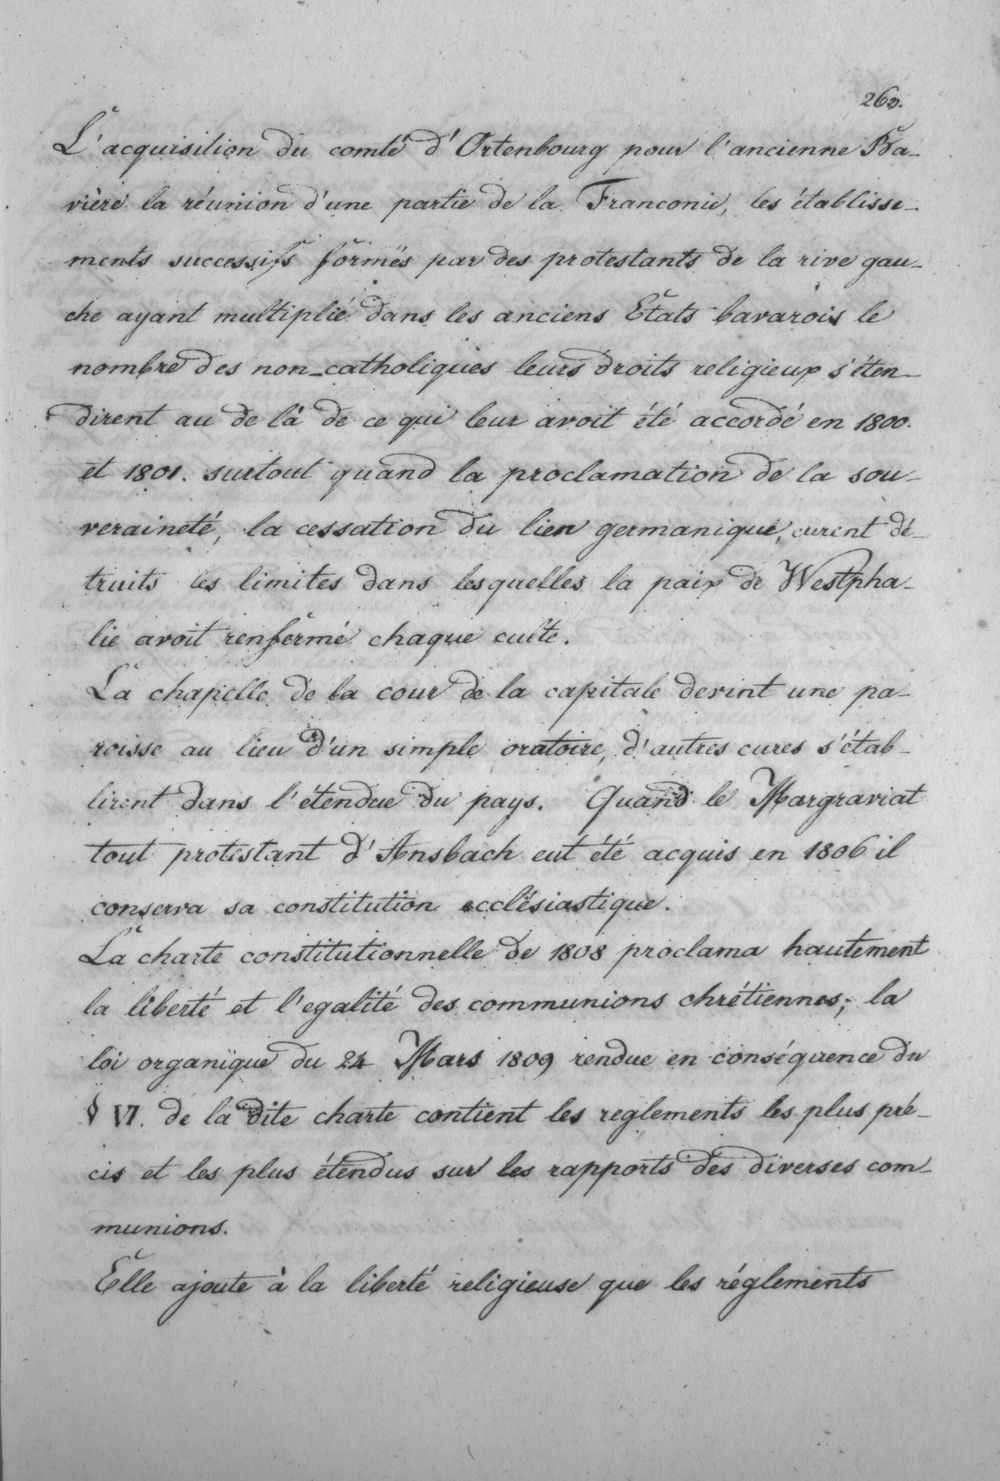 263.
L'acquisition du comté d'Ortenbourg pour l'ancienne Ba-
vière la réunion d'une partie de la Franconie, les établisse-
ments successifs formés par des protestants de la rive gau-
che ayant multiplié dans les anciens Etats bavarois le
nombre des non-catholiques leurs droits religieux s'éten-
dirent au de là de ce qui leur avoit été accordé en 1800.
et 1801. surtout quand la proclamation de la sou-
veraineté, la cessation du lien germanique, eurent dé-
truits les limites dans lesquelles la paix de Westpha-
lie avoit renfermé chaque culte.
La chapelle de la cour de la capitale devint une pa-
roisse au lieu d'un simple oratoire, d'autres cures s'étab-
lirent dans l'étendue du pays. Quand le Margraviat
tout protestant d'Ansbach eut été acquis en 1806 il
conserva sa constitution ecclésiastique.
La charte constitutionnelle de 1808 proclama hautement
la liberté et l'egalité des communions chrétiennes; la
loi organique du 24 Mars 1809 rendue en conséquence du
§ VI. de la dite charte contient les reglements les plus pré-
cis et les plus étendus sur les rapports des diverses com-
munions.
Elle ajoute à la liberté religieuse que les réglements